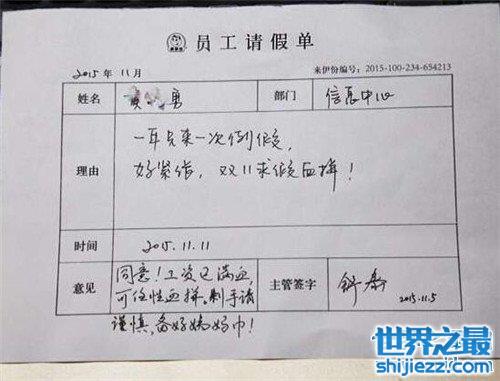 员工请假单
2015年11月
来伊份编号：2015-100-234-654213
姓名
勇
部门
信息中心
理由
一年只来一次例假,
好紧张，双11求假血拼！
时间
2015.11.11
意见
同意！工资已满血
可任性血拼。剁手请
谨慎，备好妈妈巾！
主管签字
2015.11.5
世界之最
shijiezz.com